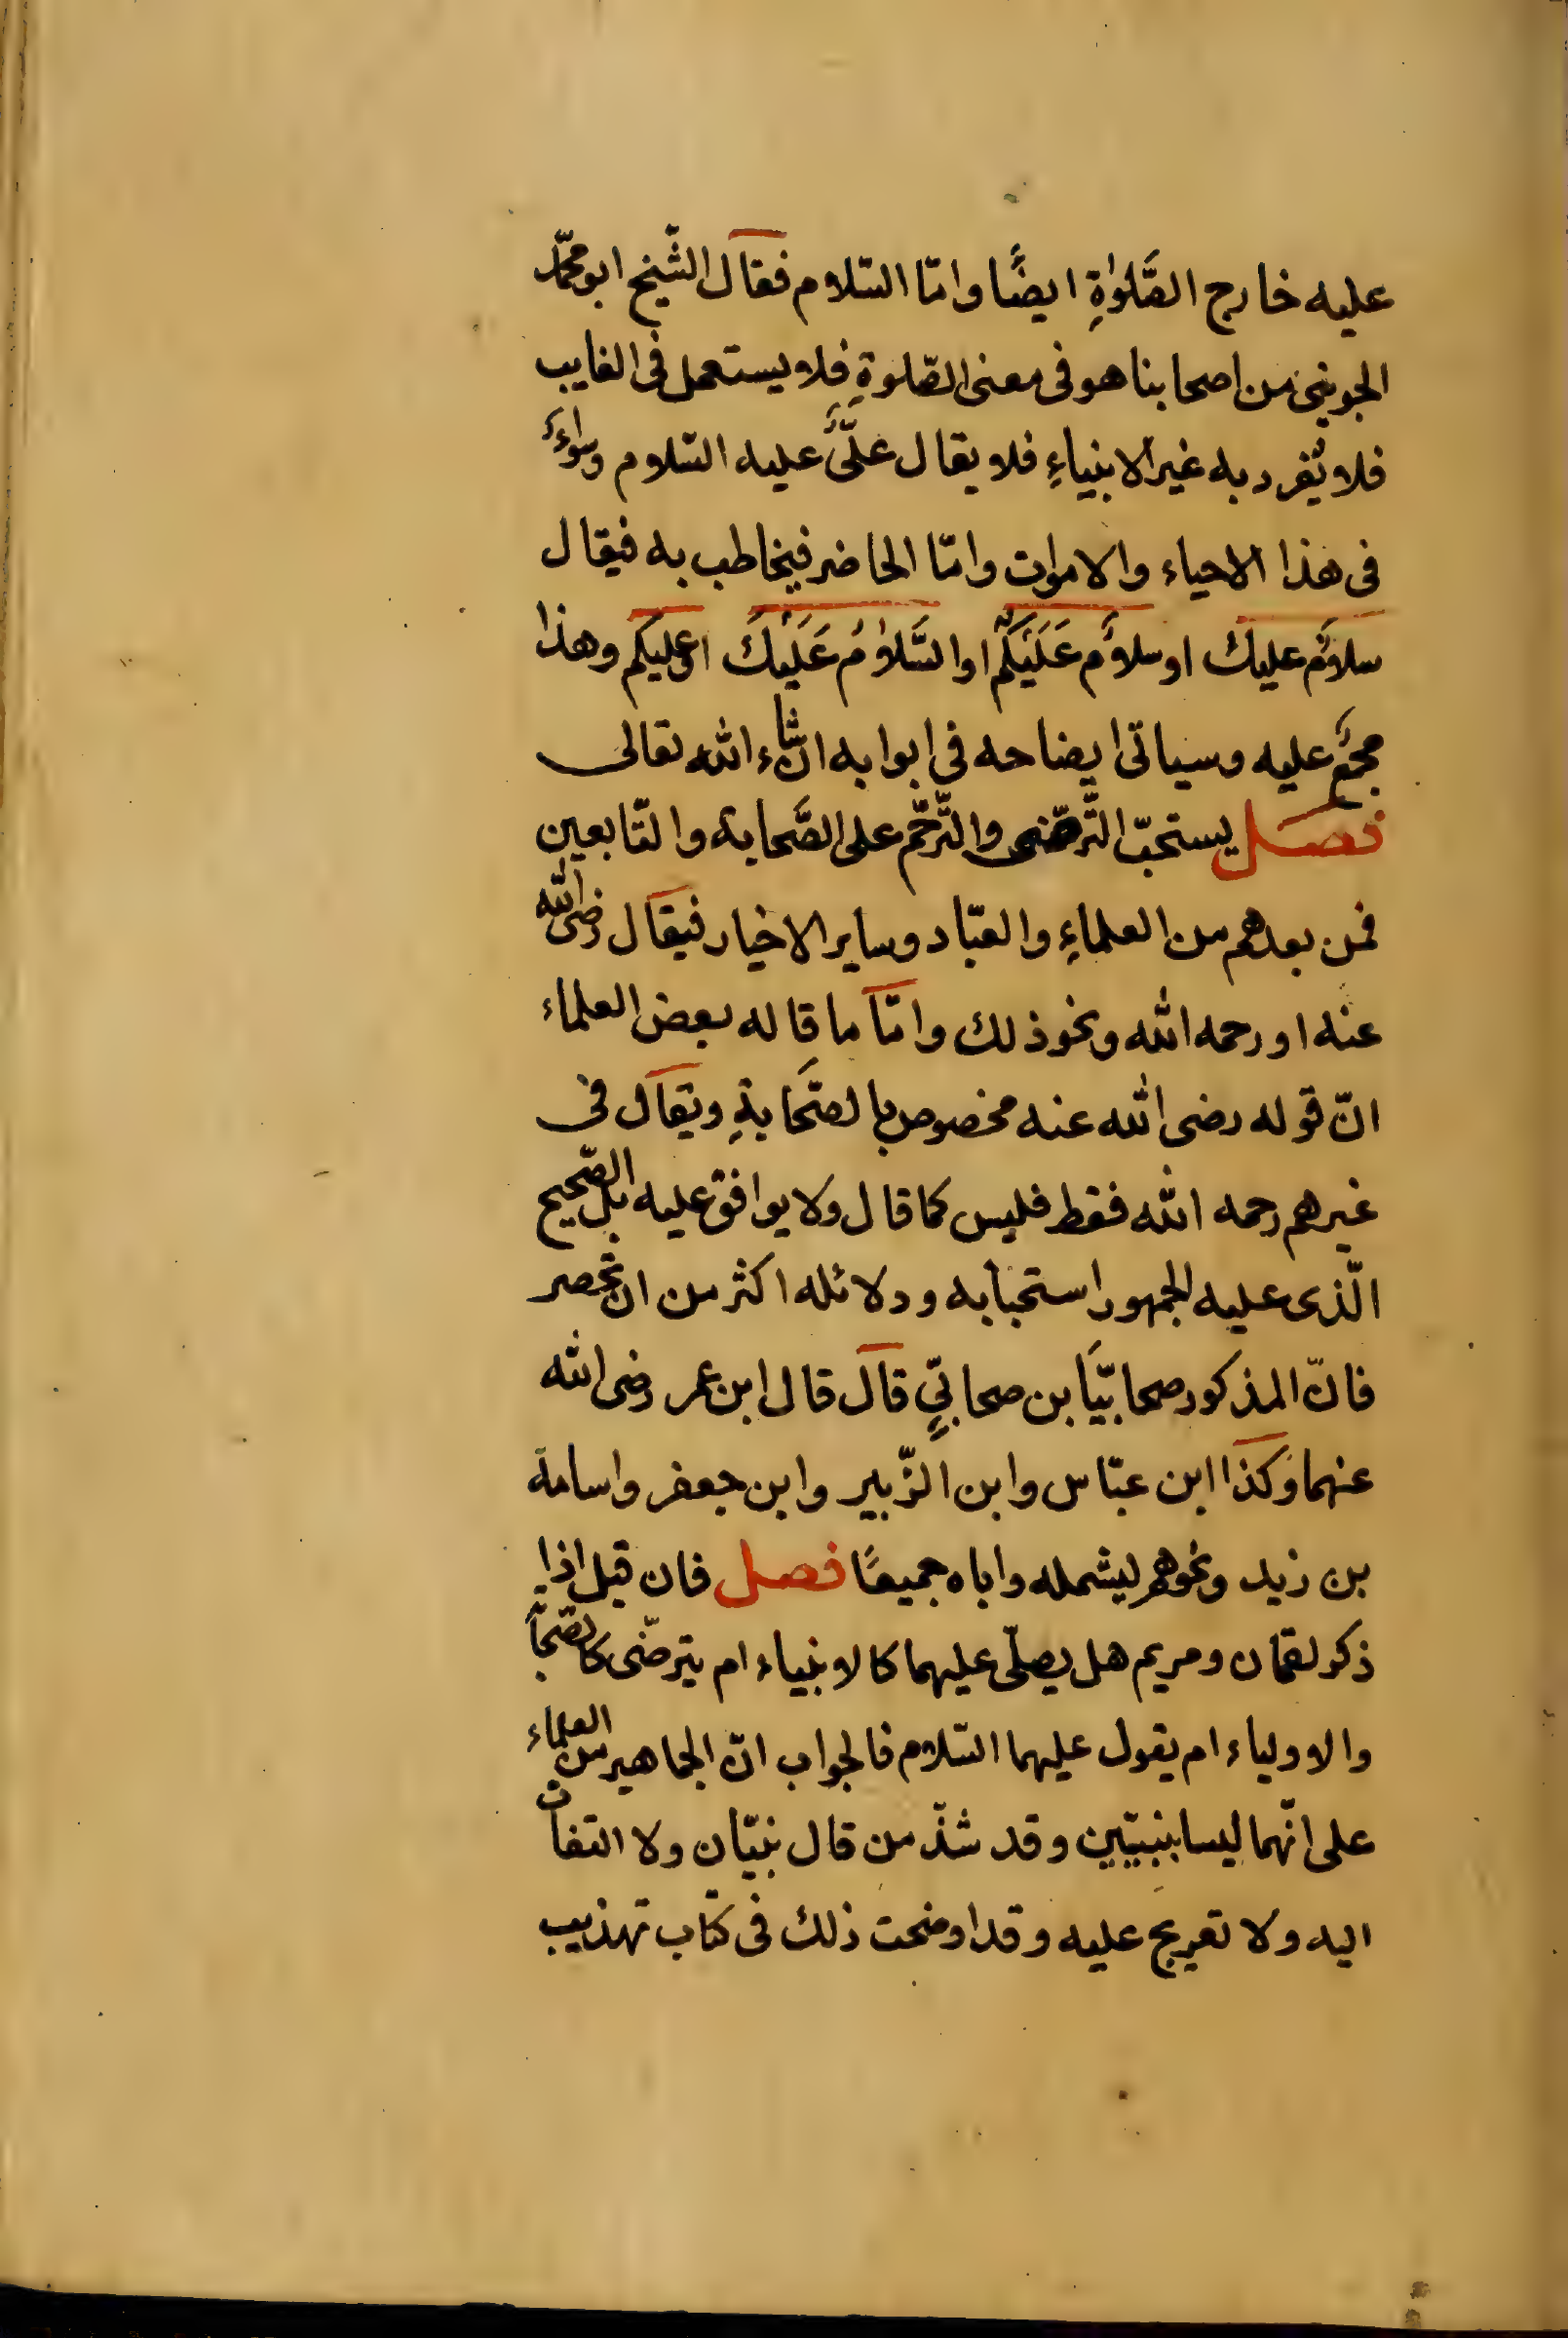 عليه خارج الصَّلوٰةِ ايضًا وامّا السّلام فقال الشّيخ ابو محمّد
الجوينى من اصحابنا هو فى معنى الصّلوةِ فلا يستعمل فى الغايب
فلا يُفرد به غير الانبياءِ فلا يقال علىٌّ عليه السّلام وسواءٌ
فى هذا الاحياء والاموات وامّا الحاضر فيخاطب به فيقال
سلامٌ عليك او سلامٌ عَلَيْكُم او السَّلامُ عَلَيْكَ او عليكم وهذا
مجمعٌ عليه وسياتى ايضاحه فى ابوابه ان شاء الله تعالى
فصل يستحبّ التّرضى والتّرحّم على الصَّحابة والتّابعين
فمن بعدهم من العلماءِ والعبّاد وساير الاخيار فيقال رضى الله
عنه او رحمه الله ونحو ذلك وامّا ما قاله بعض العلماء
انّ قوله رضى الله عنه مخصوص بالصّحَابةِ ويقال فى
غيرهم رحمه الله فقط فليس كما قال ولا يوافق عليه بل الصّحيح
الّذى عليه الجمهور استحبابه ودلائله اكثر من ان تحصر
فان المذكور صحابيّاً بن صحابىّ قال قال ابن عمر رضى الله
عنهما وكذا ابن عبّاس وابن الزّبير وابن جعفر واسامة
بن زيد ونحوهم ليشمله واباه جميعًا فصل فان قيل اذا
ذكر لقمان ومريم هل يصلّى عليهما كالانبياء ام يترضّى كالصّحابة
والاولياء ام يقول عليهما السّلام فالجواب انّ الجماهير من العلماء
على انّهما ليسا بنبيّين وقد شذّ من قال نبيّان ولا التفات
اليه ولا تعريج عليه وقد اوضحت ذلك فى كتاب تهذيب